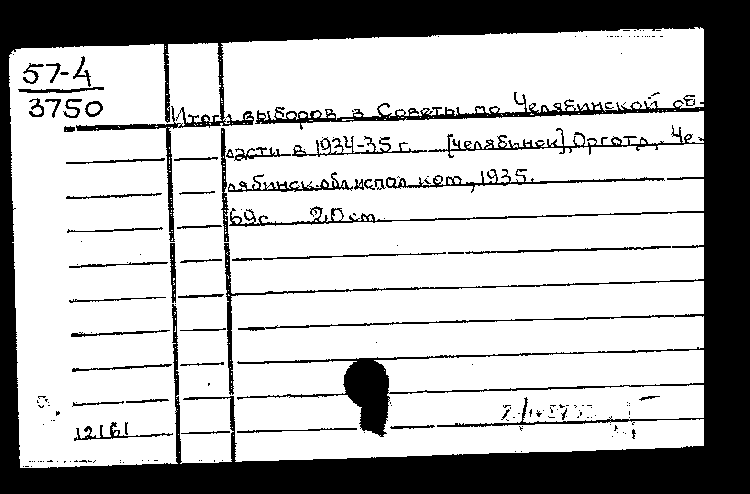 57-4
3750
Итоги выборов в Советы по Челябинской об-
ласти в 1934-35 г. [Челябинск], Орготд. Че-
лябинск.обл.испол.ком., 1935.
69 с. 20 см.
12161